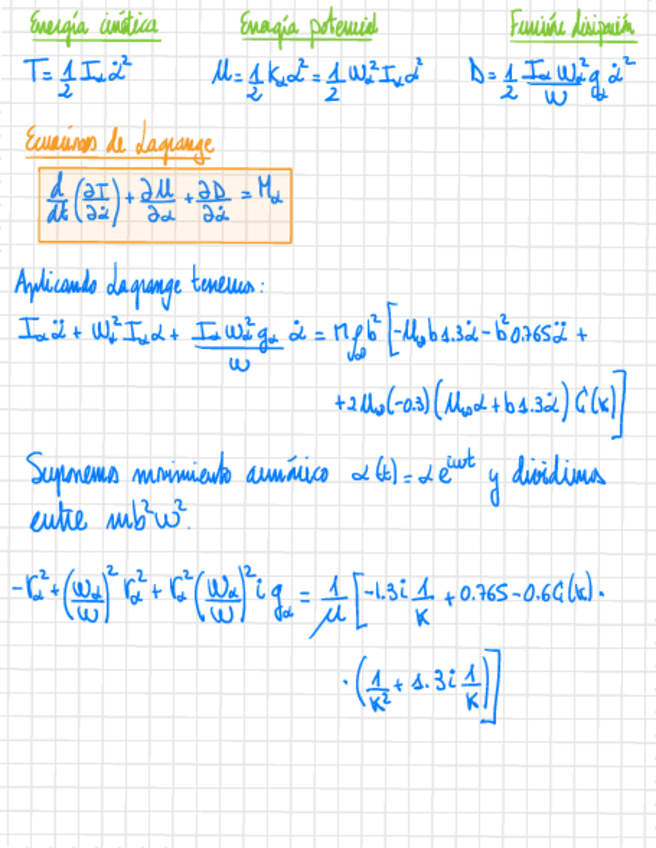 Energía cinética Energía potencial Función disipación
T = 1/2 I_α α̇² U = 1/2 k_α α² = 1/2 ω_α² I_α α² D = 1/2 (I_α ω_α²)/ω g_α α̇²
Ecuaciones de Lagrange
d/dt (∂T/∂α̇) + ∂U/∂α + ∂D/∂α̇ = M_α
Aplicando Lagrange tenemos:
I_α α̈ + ω_α² I_α α + (I_α ω_α² g_α)/ω α̇ = π ρ_∞ b² [-U_∞ b 1.3 α̇ - b² 0.765 α̈ +
+ 2 U_∞ (-0.3) (U_∞ α + b 1.3 α̇) C(k)]
Suponemos movimiento armónico α(t) = α e^{iωt} y dividimos
entre mb²ω².
-r_α² + (ω_α/ω)² r_α² + r_α² (ω_α/ω)² i g_α = 1/μ [-1.3 i 1/k + 0.765 - 0.6 C(k) ·
· (1/k² + 1.3 i 1/k)]